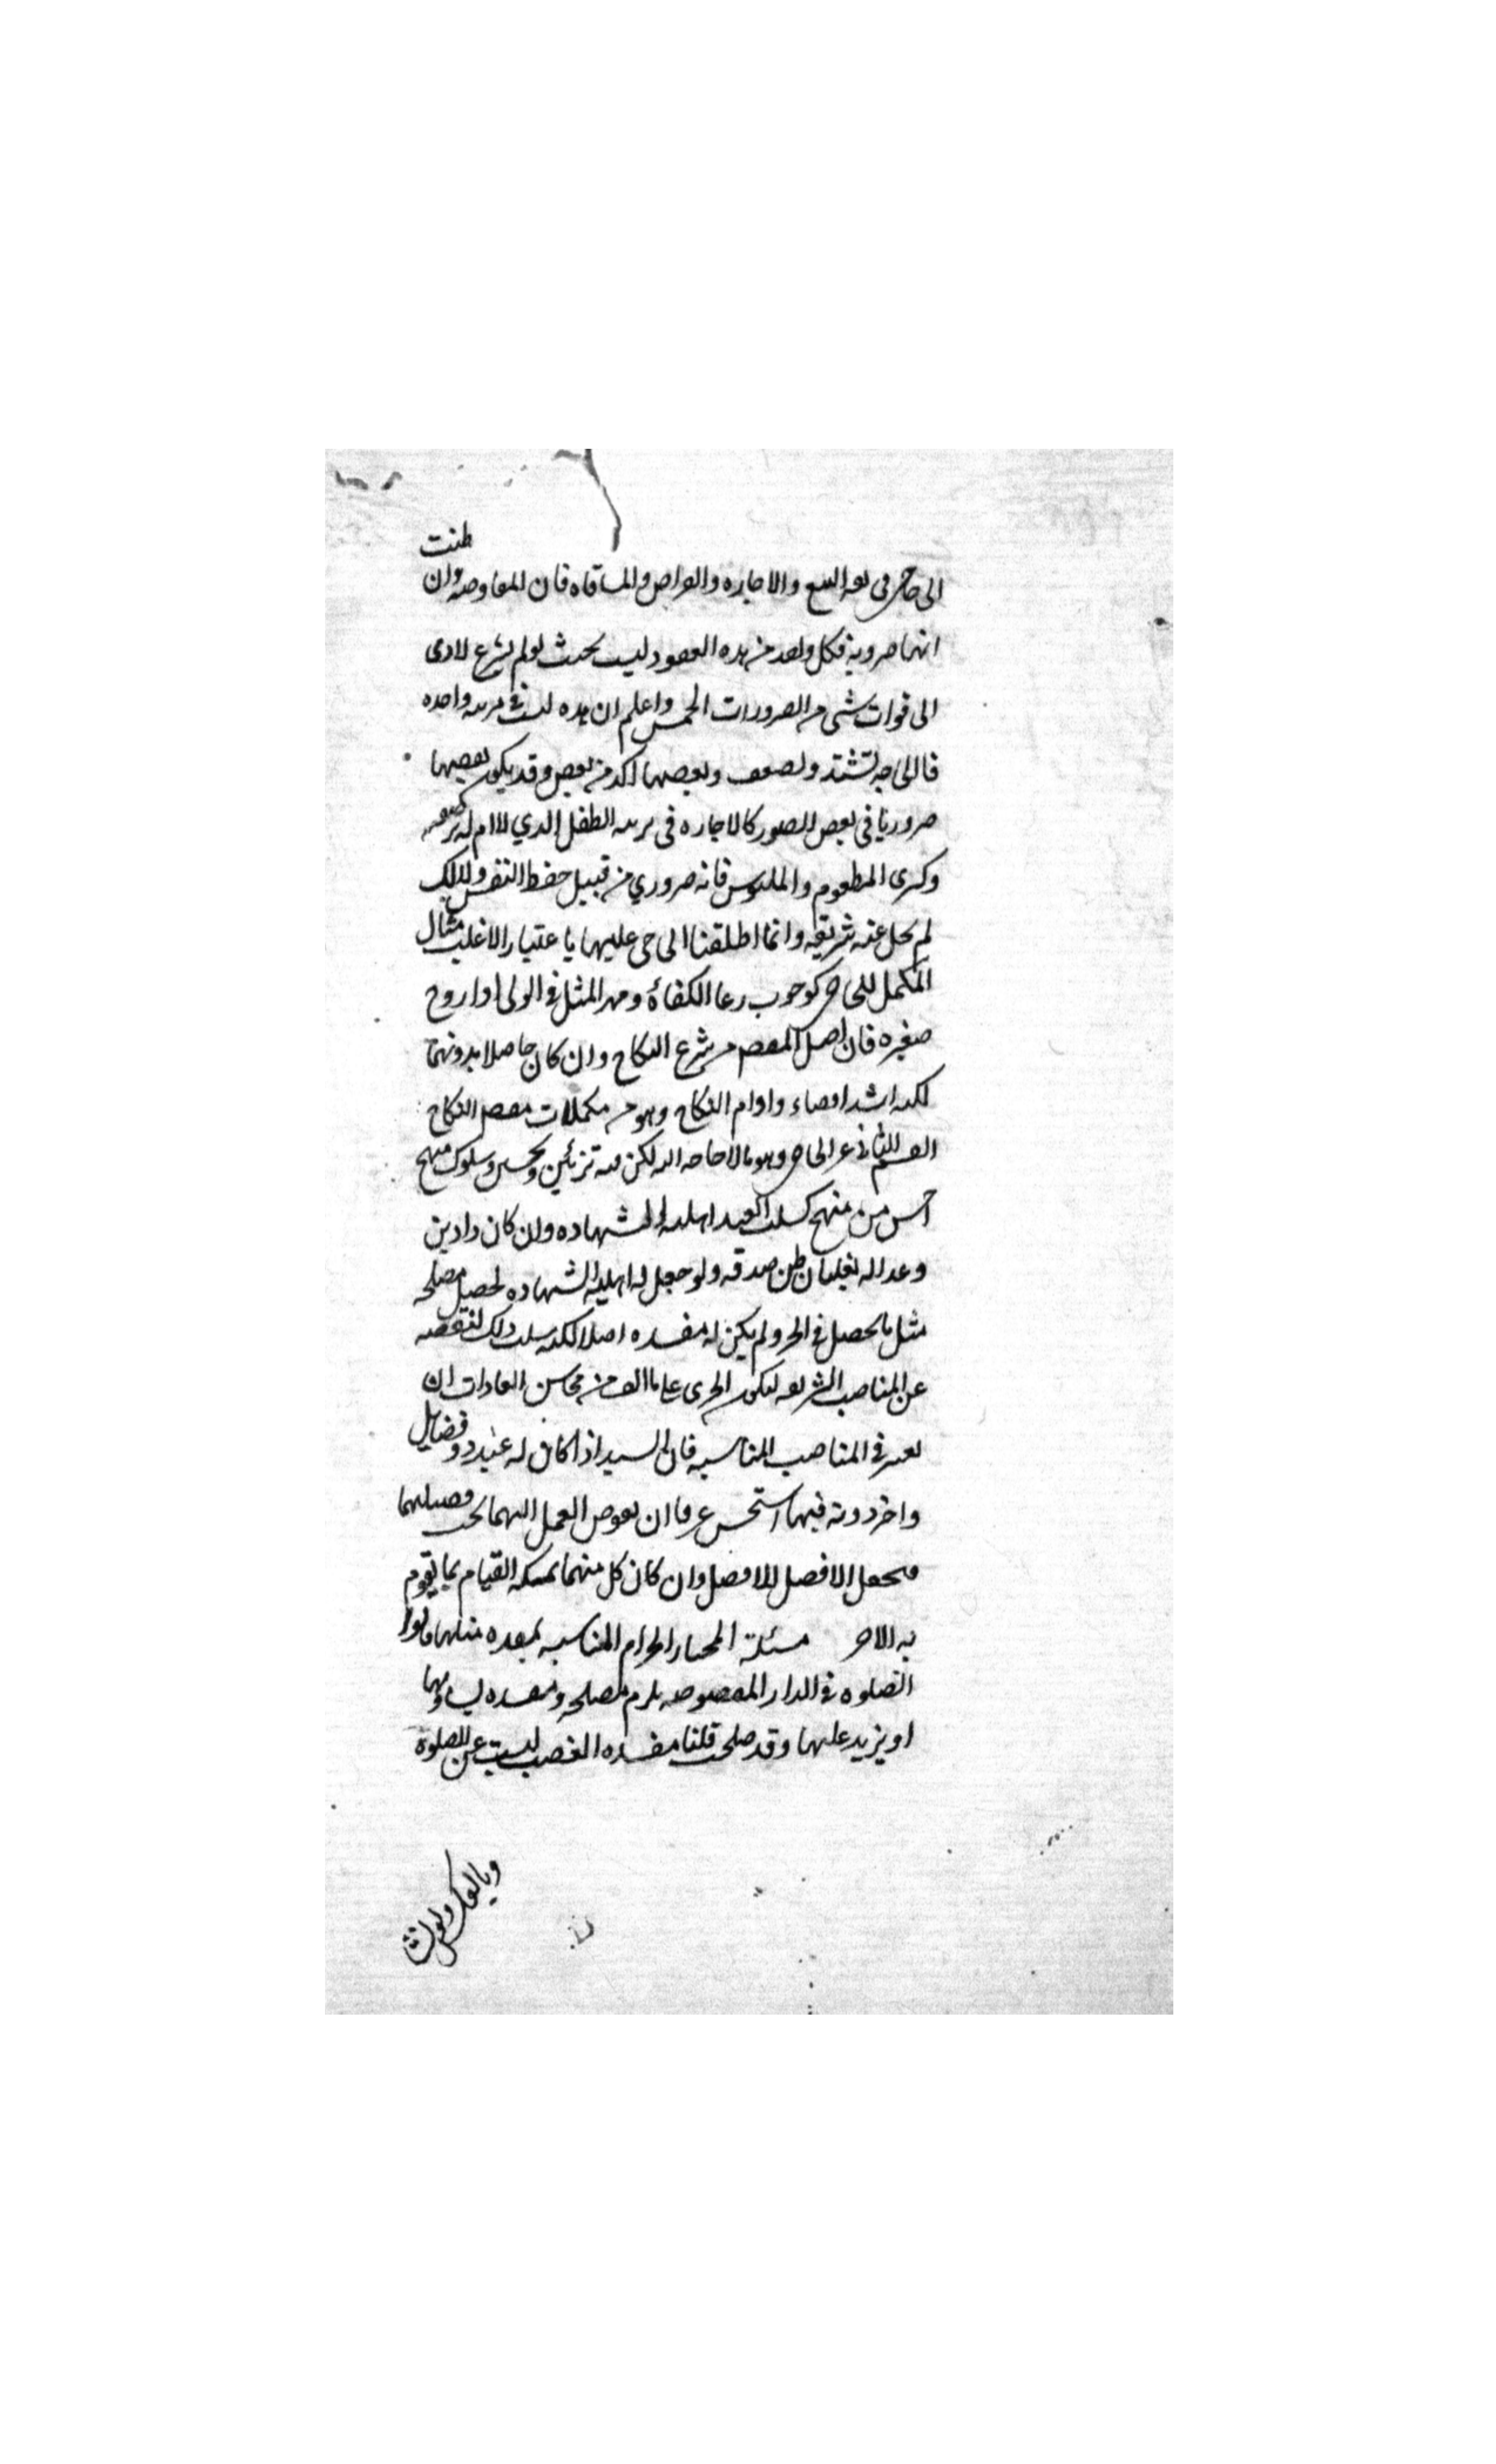 الى حاجي في نفسه البيع والاجاره والقراض والمساقاه فان المعاوضه وان ظنت
انها ضروية فكل واحد من هذه العقود ليست بحيث لو لم يشرع لادى
الى فوات شي من الضرورات الخمس واعلم ان هذه ليست في مرتبه واحده
فالحاجه تشتد وتضعف وبعضها اكد من بعض وقد يكون بعضها
ضروريا في بعض الصور كالاجاره في تربيه الطفل الذي لا ام له ترضعه
وكشرى المطعوم والملبوس فانه ضروري من قبيل حفظ النفس ولذلك
لم يخل عنه شريعه وانما اطلقنا الحاجي عليها باعتبار الاغلب مثال
المكمل للحاجي كوجوب رعاية الكفاءة ومهر المثل في الولي اذا زوج
صغيره فان اصل المقصود من شرع النكاح وان كان حاصلا بدونهما
لكنه اشد افضاء وادوام النكاح وهو من مكملات مقصود النكاح
القسم الثاني غير الحاجي وهو ما لا حاجه اليه لكن فيه تزيين وتحسين وسلوك منهج
احسن من منهج كسلب العبد اهليه الشهاده وان كان ذا دين
وعداله يغلبان ظن صدقه ولو جعل له اهليه الشهاده لحصل مصلحه
مثل ما يحصل في الحر ولم يكن له مفسده اصلا لكنه سلب ذلك لنقصه
عن المناصب الشريفه ليكون الجري على ما الف من محاسن العادات ان
يعتبر في المناصب المناسبه فان السيد اذا كان له عبد ذو فضايل
واخر دونه فيها استحسن عرفا ان يفوض العمل اليهما بحسب فضيلتهما
فيجعل الافضل للافضل وان كان كل منهما يمكنه القيام بما يقوم
به الاخر مسئلة المختار انخرام المناسبه بمفسده مثلها قالوا
الصلوه في الدار المغصوبه يلزم مصلحه ومفسده تساويها
او يزيد عليها وقد صحت قلنا مفسده الغصب ليست عن الصلوة
وبالعكس ولو نشا